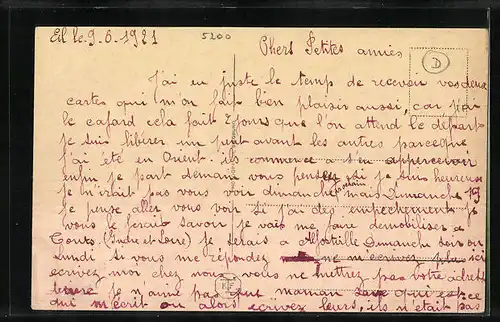 le 9.6.1921
5200
Chers Petites amies
D
J'ai eu juste le temps de recevoir vos deux
cartes qui m'on fait bien plaisir aussi, car j'ai
le cafard cela fait 2 jours que l'on attend le départ
Je suis libérer un peut avant les autres parceque
j'ai été en Orient. ils commence à s'en appercevoir
enfin je part demain vous pensez si je suis heureuse
je n'irait pas vous voir dimanche mais Dimanche 19
prochain
je pense aller vous voir si j'ai des empechement je
vous le ferait savoir je vais me faire demobiliser a
Tours. (Indre et Loire) je serais a Dimanche soir ou
Lundi Si vous me répondez ne m'écrivez plus ici
écrivez moi chez nous vous ne mettrez pas votre adresse
je n'aime pas que maman qui est-ce
qui m'écrit ou alors écrivez leurs, ils n'était pas